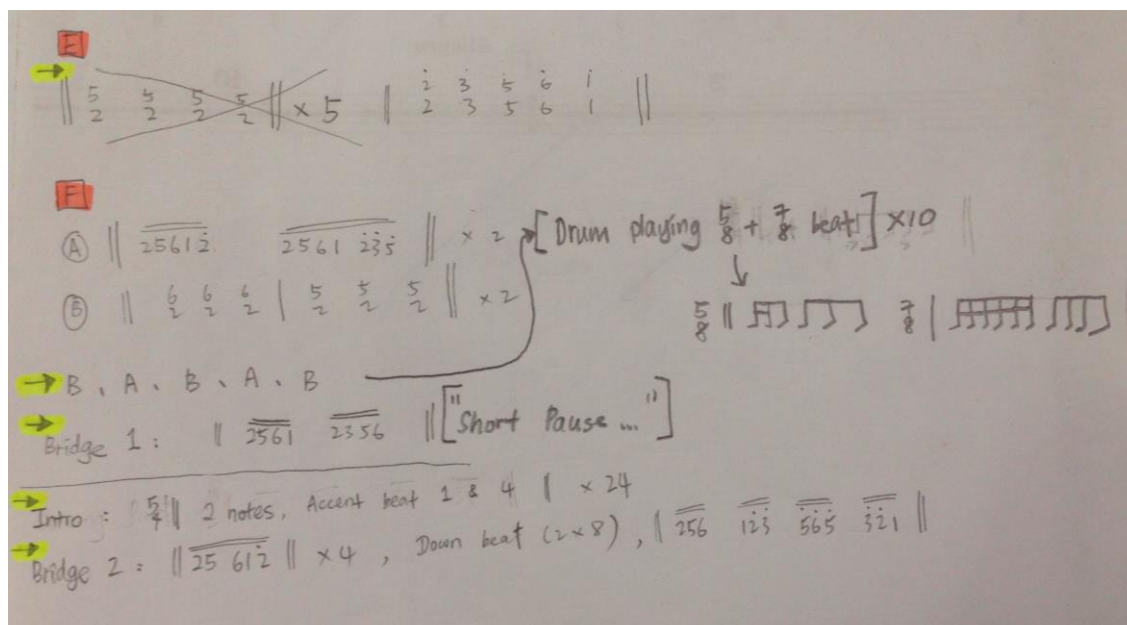 E
→ || 5/2 5/2 5/2 5/2 || × 5 || 2̇/2 3̇/3 5̇/5 6̇/6 i/1 ||
F
Ⓐ || 25612̇ 2561 2̇3̇5̇ || × 2 [Drum playing 5/8 + 7/8 beat] ×10
Ⓑ || 6/2 6/2 6/2 | 5/2 5/2 5/2 || × 2
5/8 || 7/8 |
→ B、A、B、A、B
→ Bridge 1 : || 2561 2356 || ["Short Pause ..."]
→ Intro : 5/4 || 2 notes, Accent beat 1 & 4 || × 24
→ Bridge 2 : || 25 612̇ || × 4 , Down beat (2×8), || 256 12̇3̇ 5̇6̇5̇ 3̇2̇1 ||